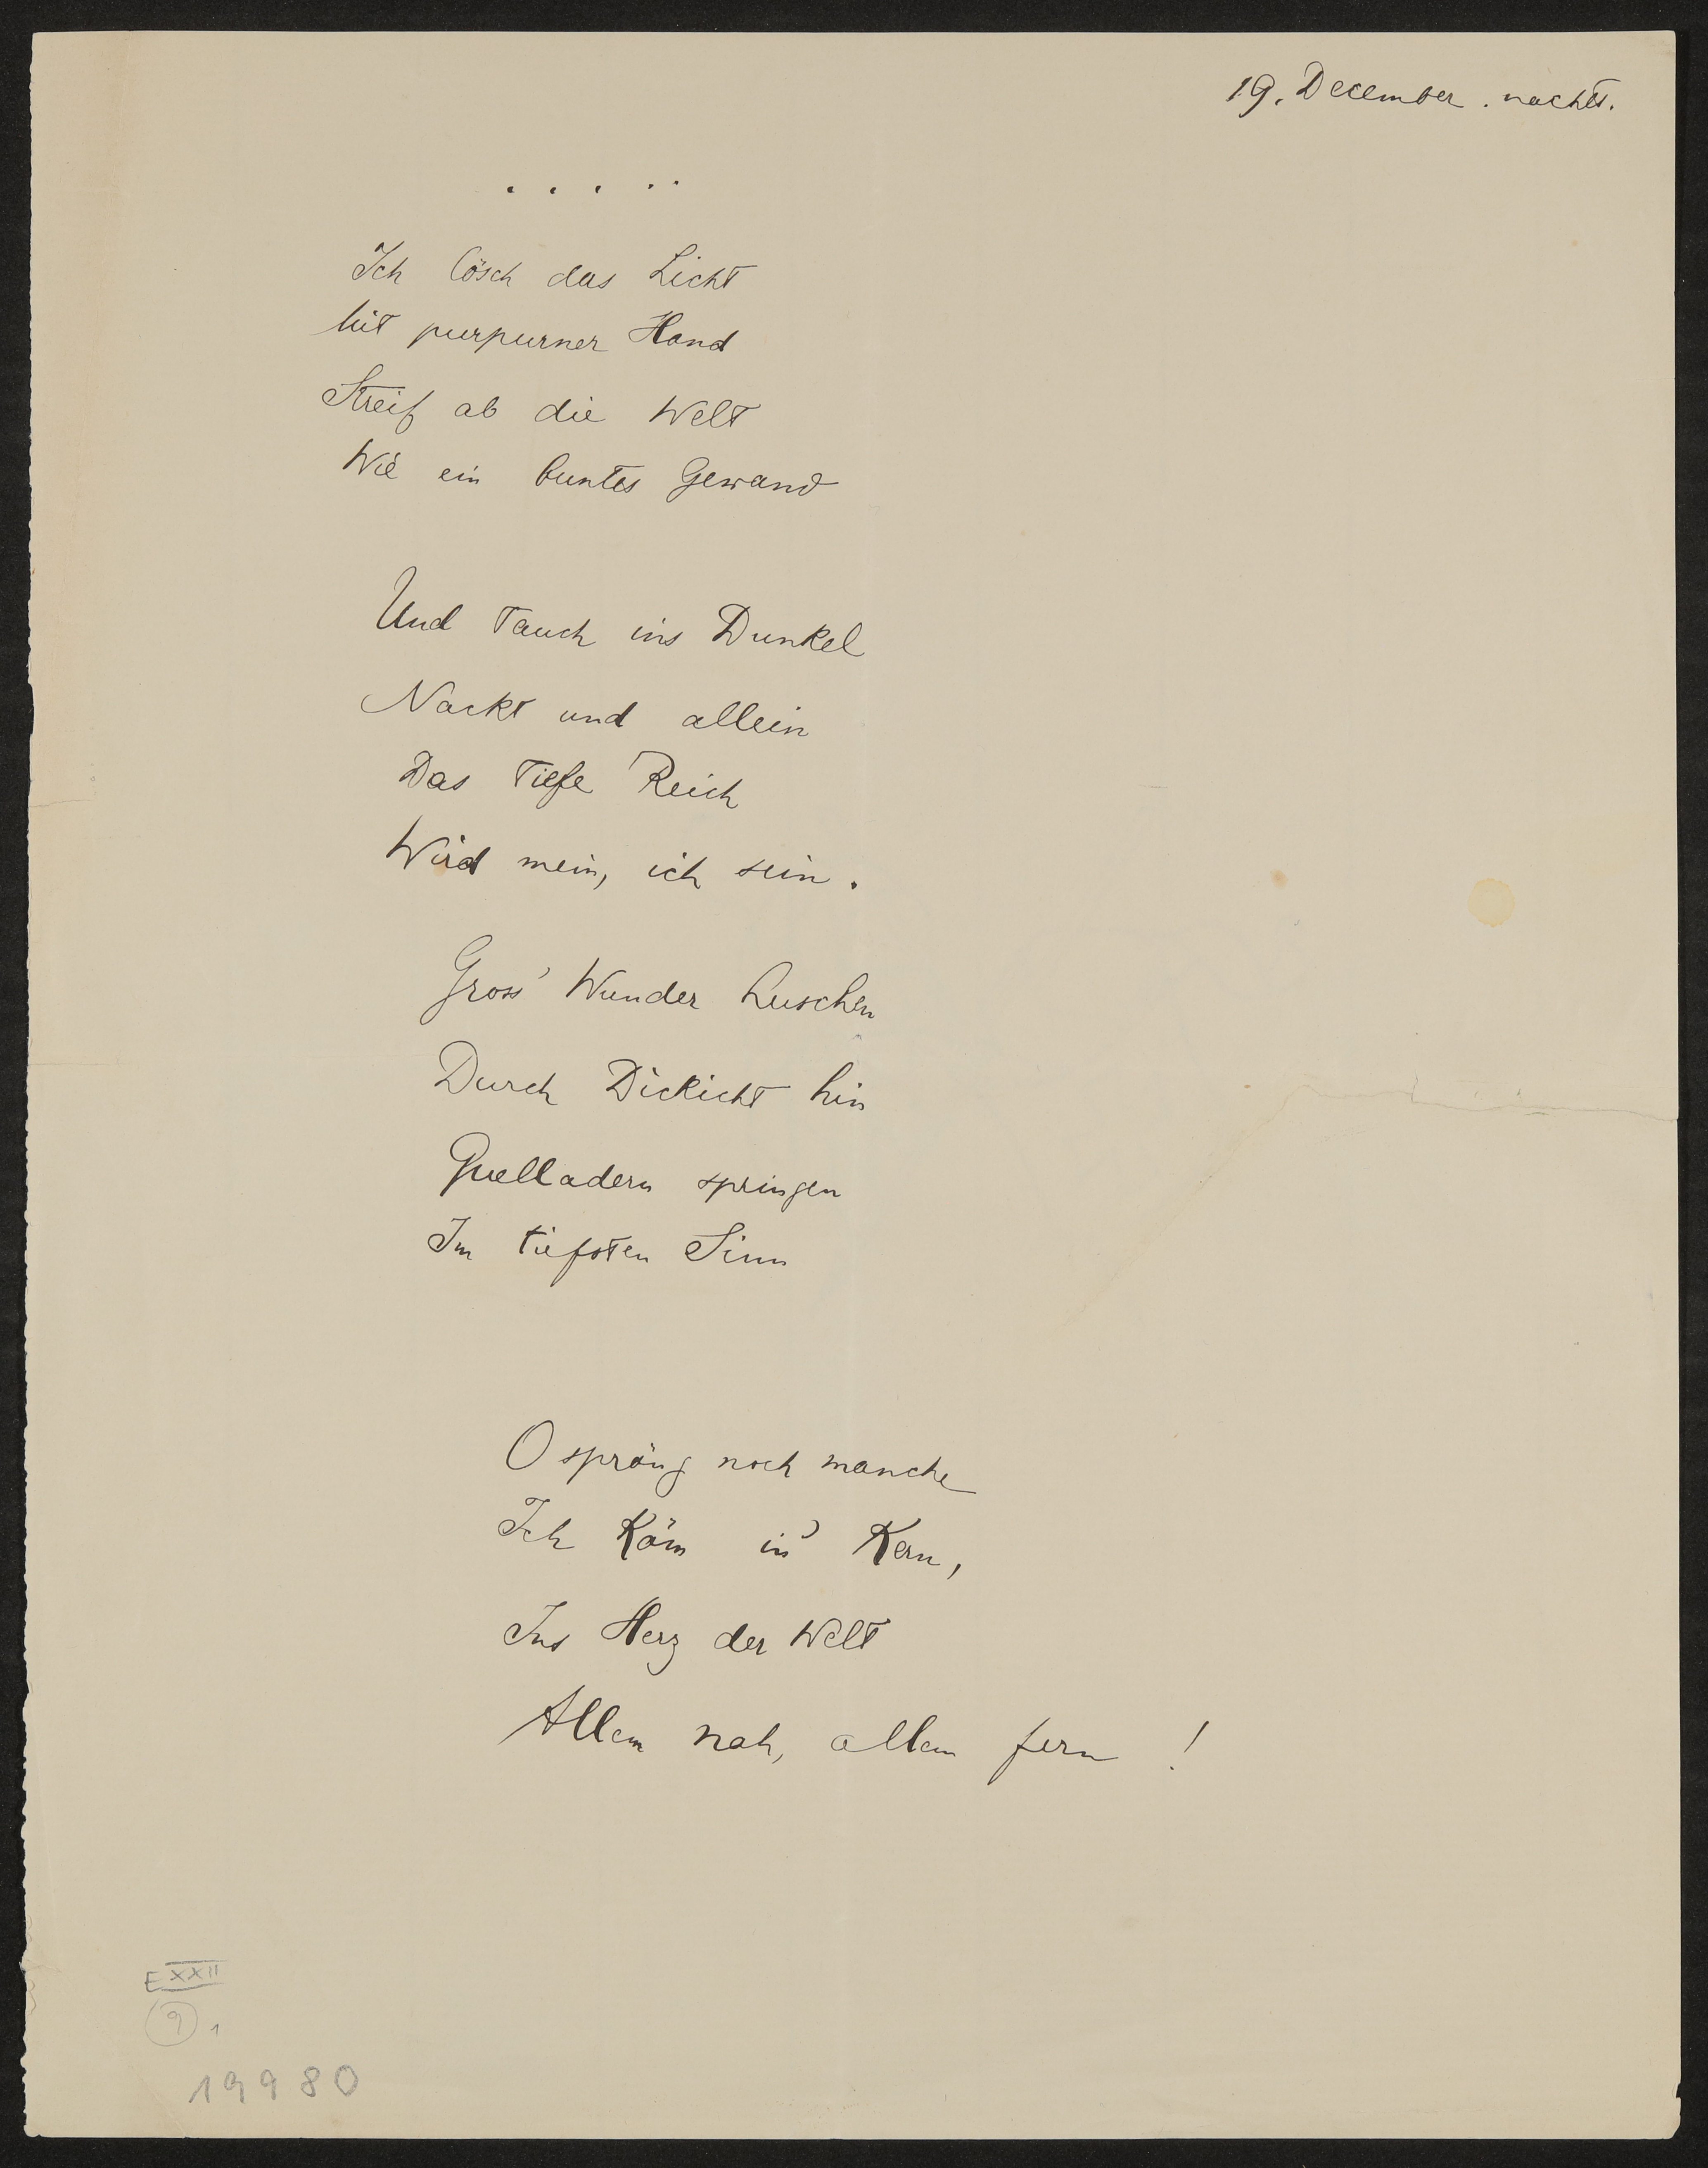 19. December . nachts.
. . . . .
Ich lösch das Licht
Mit purpurner Hand
Streif ab die Welt
Wie ein buntes Gewand
Und tauch ins Dunkel
Nackt und allein
Das tiefe Reich
Wird mein, ich sein.
Gross' Wunder huschen
Durch Dickicht hin
Quelladern springen
Im tiefsten Sinn
O spräng noch manche
Ich käm in' Kern,
Ins Herz der Welt
Allem nah, allem fern !
E XXII
9 1
19980